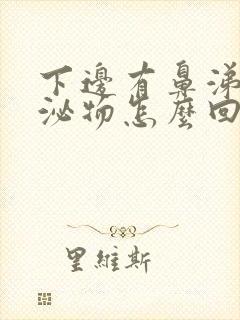 下邊有鼻涕
泌物怎麼回
里維斯